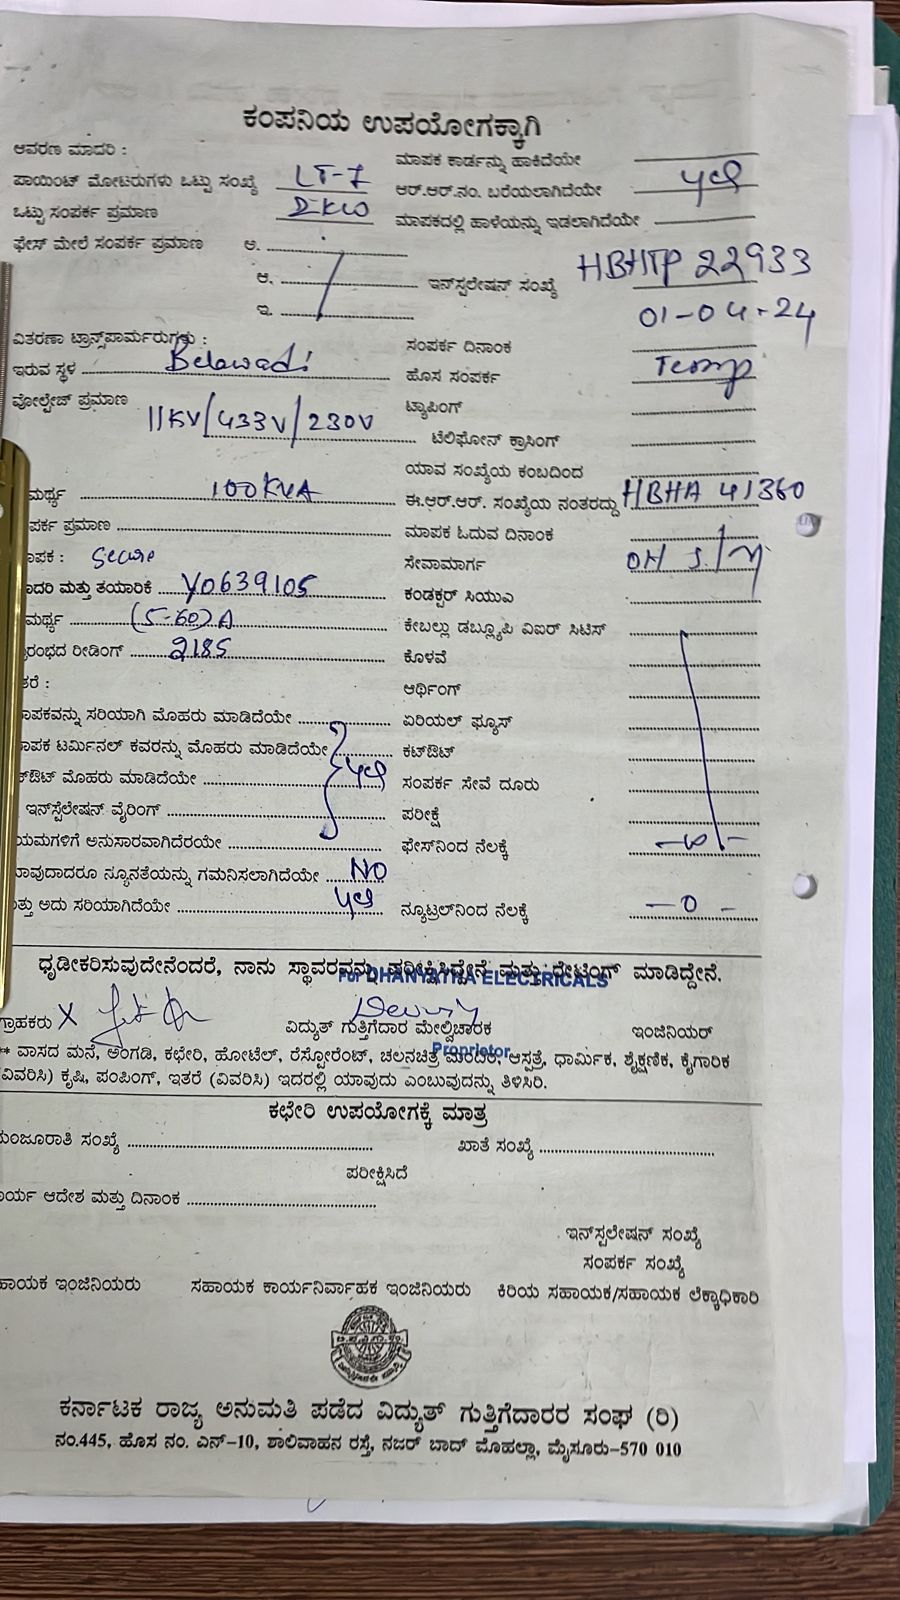 ಕಂಪನಿಯ ಉಪಯೋಗಕ್ಕಾಗಿ
ಆವರಣ ಮಾದರಿ :
ಮಾಪಕ ಕಾರ್ಡನ್ನು ಹಾಕಿದೆಯೇ
ಪಾಯಿಂಟ್ ಮೋಟರುಗಳು ಒಟ್ಟು ಸಂಖ್ಯೆ LT-7
ಆರ್.ಆರ್.ನಂ. ಬರೆಯಲಾಗಿದೆಯೇ
ಒಟ್ಟು ಸಂಪರ್ಕ ಪ್ರಮಾಣ
ಮಾಪಕದಲ್ಲಿ ಹಾಳೆಯನ್ನು ಇಡಲಾಗಿದೆಯೇ
ಫೇಸ್ ಮೇಲೆ ಸಂಪರ್ಕ ಪ್ರಮಾಣ ಅ.
ಆ.
ಇನ್‌ಸ್ಟಲೇಷನ್ ಸಂಖ್ಯೆ HBHTP 22933
ಇ.
01-04-24
ವಿತರಣಾ ಟ್ರಾನ್ಸ್‌ಫಾರ್ಮರುಗಳು :
ಸಂಪರ್ಕ ದಿನಾಂಕ
ಇರುವ ಸ್ಥಳ Belawadi
ಹೊಸ ಸಂಪರ್ಕ Temp
ವೋಲ್ಟೇಜ್ ಪ್ರಮಾಣ 11KV/433V/230V
ಟ್ಯಾಪಿಂಗ್
ಟೆಲಿಫೋನ್ ಕ್ರಾಸಿಂಗ್
ಯಾವ ಸಂಖ್ಯೆಯ ಕಂಬದಿಂದ
ಮರ್ಥ್ಯ 100KVA
ಈ.ಆರ್.ಆರ್. ಸಂಖ್ಯೆಯ ನಂತರದ್ದು HBHA 41360
ಪರ್ಕ ಪ್ರಮಾಣ
ಮಾಪಕ ಓದುವ ದಿನಾಂಕ
ಾಪಕ : Secure
ಸೇವಾಮಾರ್ಗ OH
ಾದರಿ ಮತ್ತು ತಯಾರಿಕೆ Y0639105
ಕಂಡಕ್ಟರ್ ಸಿಯುಎ
ಮರ್ಥ್ಯ (5-60)A
ಕೇಬಲ್ಲು ಡಬ್ಲ್ಯೂಪಿ ವಿಐಆರ್ ಸಿಟಿಸ್
ರಂಭದ ರೀಡಿಂಗ್ 2185
ಕೊಳವೆ
ತರೆ :
ಆರ್ಥಿಂಗ್
ಾಪಕವನ್ನು ಸರಿಯಾಗಿ ಮೊಹರು ಮಾಡಿದೆಯೇ
ಏರಿಯಲ್ ಫ್ಯೂಸ್
ಾಪಕ ಟರ್ಮಿನಲ್ ಕವರನ್ನು ಮೊಹರು ಮಾಡಿದೆಯೇ
ಕಟ್‌ಔಟ್
ಕ್‌ಔಟ್ ಮೊಹರು ಮಾಡಿದೆಯೇ
ಸಂಪರ್ಕ ಸೇವೆ ದೂರು
ಇನ್‌ಸ್ಟೆಲೇಷನ್ ವೈರಿಂಗ್
ಪರೀಕ್ಷೆ
ಯಮಗಳಿಗೆ ಅನುಸಾರವಾಗಿದೆರಯೇ
ಫೇಸ್‌ನಿಂದ ನೆಲಕ್ಕೆ
ಾವುದಾದರೂ ನ್ಯೂನತೆಯನ್ನು ಗಮನಿಸಲಾಗಿದೆಯೇ NO
ತ್ತು ಅದು ಸರಿಯಾಗಿದೆಯೇ
ನ್ಯೂಟ್ರಲ್‌ನಿಂದ ನೆಲಕ್ಕೆ —0—
ಧೃಡೀಕರಿಸುವುದೇನೆಂದರೆ, ನಾನು ಸ್ಥಾವರವನ್ನು ಪರೀಕ್ಷಿಸಿದ್ದೇನೆ ಮತ್ತು ರೇಟಿಂಗ್ ಮಾಡಿದ್ದೇನೆ.
For DHANYATRA ELECTRICALS
ಗ್ರಾಹಕರು X
ವಿದ್ಯುತ್ ಗುತ್ತಿಗೆದಾರ ಮೇಲ್ವಿಚಾರಕ
ಇಂಜಿನಿಯರ್
Proprietor
** ವಾಸದ ಮನೆ, ಅಂಗಡಿ, ಕಛೇರಿ, ಹೋಟೆಲ್, ರೆಸ್ಟೋರೆಂಟ್, ಚಲನಚಿತ್ರ ಮಂದಿರ, ಆಸ್ಪತ್ರೆ, ಧಾರ್ಮಿಕ, ಶೈಕ್ಷಣಿಕ, ಕೈಗಾರಿಕ
ವಿವರಿಸಿ) ಕೃಷಿ, ಪಂಪಿಂಗ್, ಇತರೆ (ವಿವರಿಸಿ) ಇದರಲ್ಲಿ ಯಾವುದು ಎಂಬುವುದನ್ನು ತಿಳಿಸಿರಿ.
ಕಛೇರಿ ಉಪಯೋಗಕ್ಕೆ ಮಾತ್ರ
ಮಂಜೂರಾತಿ ಸಂಖ್ಯೆ
ಖಾತೆ ಸಂಖ್ಯೆ
ಪರೀಕ್ಷಿಸಿದೆ
ಾರ್ಯ ಆದೇಶ ಮತ್ತು ದಿನಾಂಕ
ಇನ್‌ಸ್ಟಲೇಷನ್ ಸಂಖ್ಯೆ
ಸಂಪರ್ಕ ಸಂಖ್ಯೆ
ಹಾಯಕ ಇಂಜಿನಿಯರು
ಸಹಾಯಕ ಕಾರ್ಯನಿರ್ವಾಹಕ ಇಂಜಿನಿಯರು
ಕಿರಿಯ ಸಹಾಯಕ/ಸಹಾಯಕ ಲೆಕ್ಕಾಧಿಕಾರಿ
ಕರ್ನಾಟಕ ರಾಜ್ಯ ಅನುಮತಿ ಪಡೆದ ವಿದ್ಯುತ್ ಗುತ್ತಿಗೆದಾರರ ಸಂಘ (ರಿ)
ನಂ.445, ಹೊಸ ನಂ. ಎನ್-10, ಶಾಲಿವಾಹನ ರಸ್ತೆ, ನಜರ್ ಬಾದ್ ಮೊಹಲ್ಲಾ, ಮೈಸೂರು-570 010